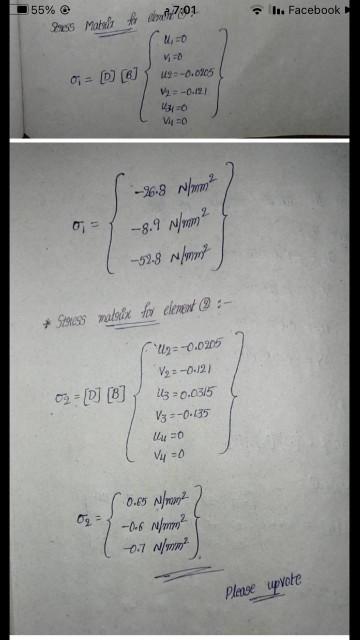 55%
7:01
Facebook
Stress Matrix for element ①:
σ₁ = [D] [B] { u₁=0
v₁=0
u₂=-0.0205
v₂=-0.121
u₄=0
v₄=0 }
σ₁ = { -26.8 N/mm²
-8.9 N/mm²
-52.8 N/mm² }
* Stress matrix for element ② :-
σ₂ = [D] [B] { u₂=-0.0205
v₂=-0.121
u₃=0.0315
v₃=-0.135
u₄=0
v₄=0 }
σ₂ = { 0.65 N/mm²
-0.6 N/mm²
-0.7 N/mm² }
Please upvote